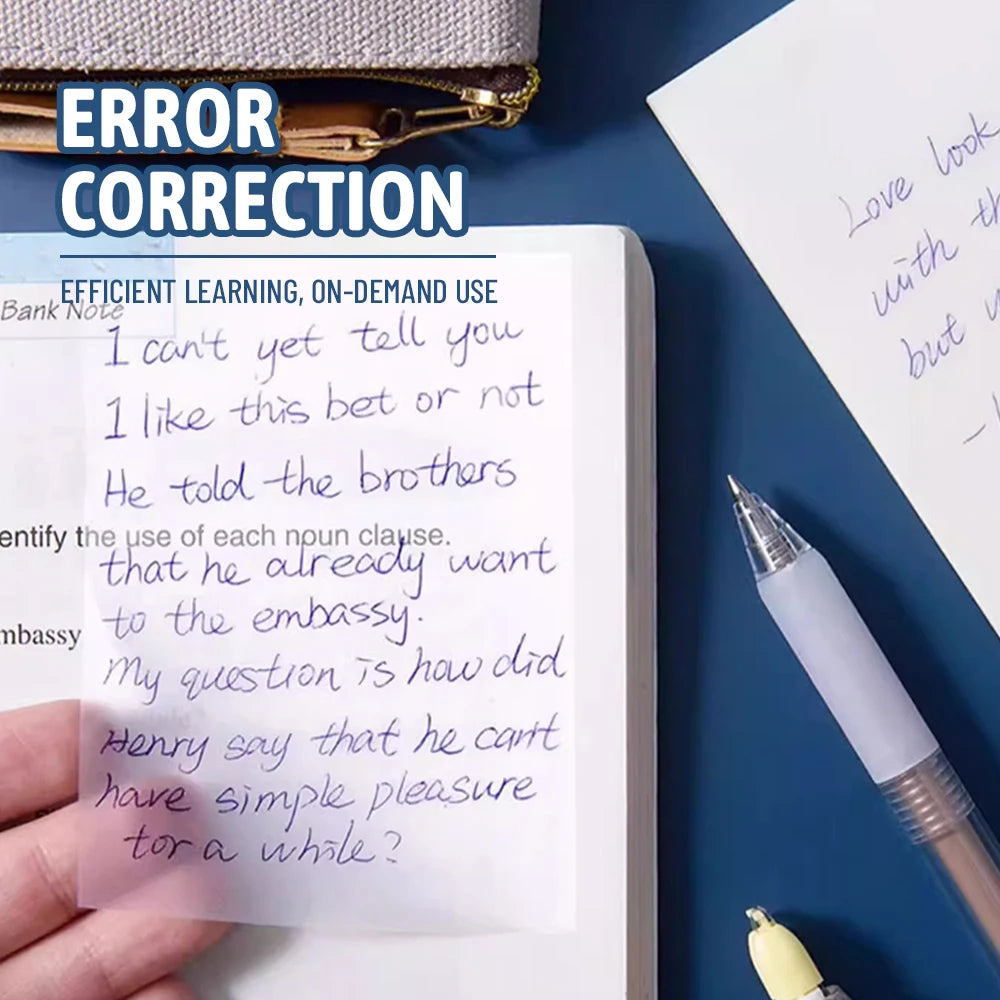 ERROR
CORRECTION
EFFICIENT LEARNING, ON-DEMAND USE
Bank Note
I can't yet tell you
I like this bet or not
He told the brothers
entify the use of each noun clause.
that he already want
mbassy
to the embassy.
My question is how did
Henry say that he can't
have simple pleasure
for a while?
Love look
with th
but